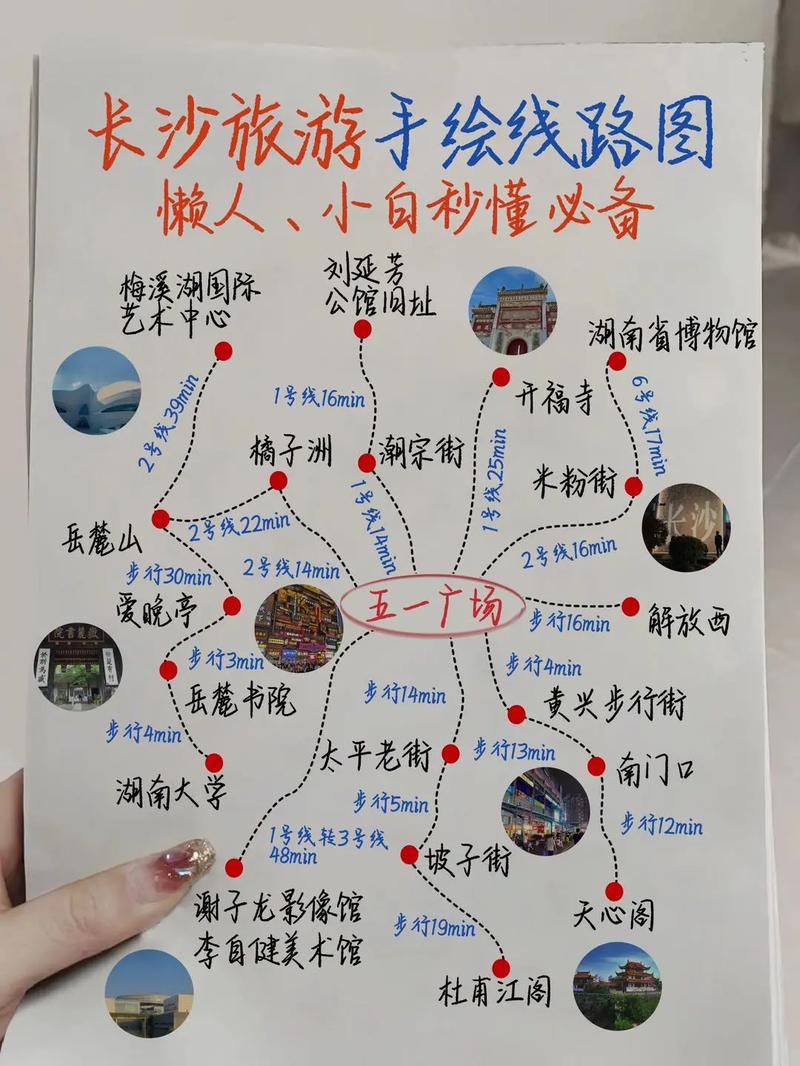 长沙旅游手绘线路图
懒人、小白秒懂必备
梅溪湖国际
艺术中心
刘延芳
公馆旧址
湖南省博物馆
开福寺
2号线39min
1号线16min
6号线17min
橘子洲
潮宗街
1号线25min
米粉街
长沙
岳麓山
2号线22min
1号线14min
2号线16min
步行30min
2号线14min
爱晚亭
五一广场
步行16min
解放西
步行3min
岳麓书院
步行14min
步行4min
黄兴步行街
步行4min
湖南大学
太平老街
步行13min
南门口
步行5min
步行12min
1号线转3号线
48min
坡子街
谢子龙影像馆
李自健美术馆
步行19min
天心阁
杜甫江阁